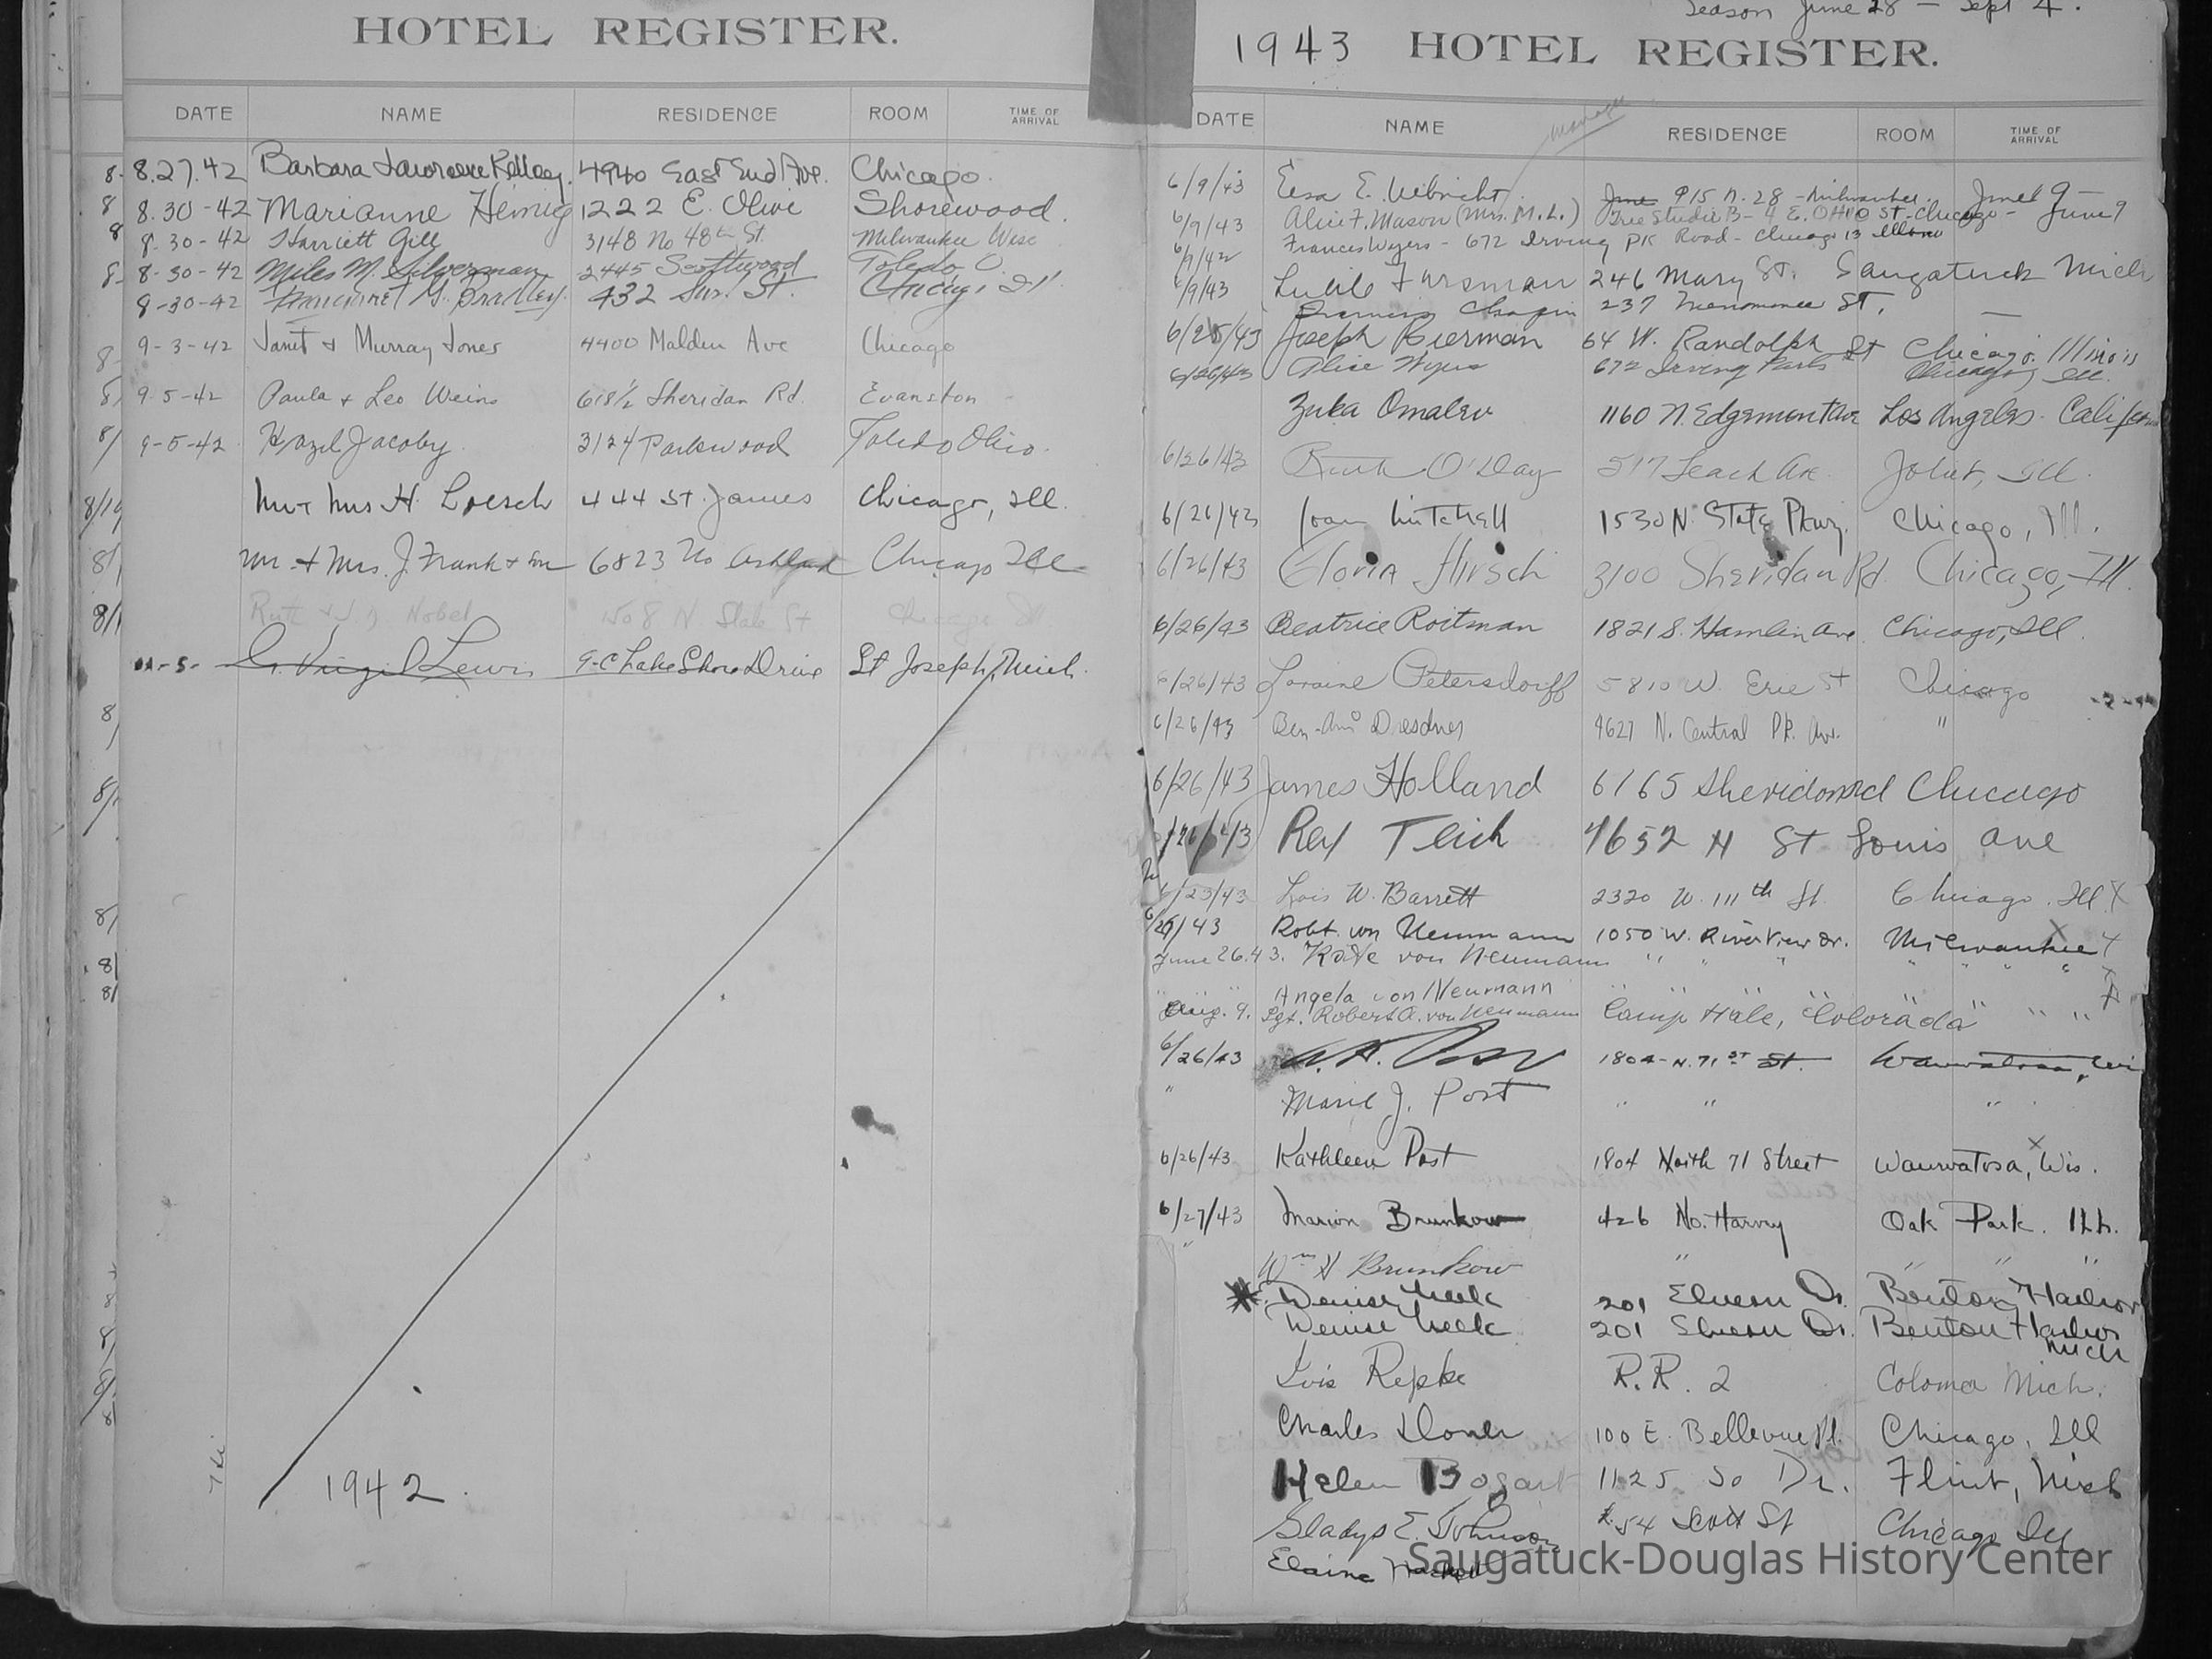 HOTEL REGISTER.
DATE NAME RESIDENCE ROOM TIME OF ARRIVAL
8.27.42 Barbara Lawrence Kelley. 4940 East End Ave. Chicago.
8.30-42 Marianne 1222 E. Olive Shorewood.
8.30-42 Harriett Gill 3148 No 48th St. Milwaukee Wisc
8-30-42 Miles M. Silverman 2445 Scottwood Toledo O.
8-30-42 G. Bradley 432 St. Chicago Ill
9-3-42 Janet & Murray Jones 4400 Malden Ave Chicago
9-5-42 Paula & Leo Weins 618½ Sheridan Rd. Evanston
9-5-42 Hazel Jacoby 3124 Parkwood Toledo Ohio.
Mr & Mrs H. Loesch 444 St. James Chicago, Ill.
Mr. & Mrs. J. Frank & Son 6823 No Ashland Chicago Ill
Ruth & Nobel 1508 N. State St Chicago Ill
G. Virgil Lewis Lake Shore Drive St Joseph, Mich.
1942.
Season June 28 - Sept 4.
1943 HOTEL REGISTER.
DATE NAME RESIDENCE ROOM TIME OF ARRIVAL
6/9/43 Elsa E. Ulbricht June 915 N. 28 - Milwaukee. June 9 -
6/9/43 Alice F. Mason (Mrs. M. L.) Tree Studio B- 4 E. OHIO St - Chicago - June 9
Frances Wyers - 672 Irving PK Road - Chicago 13 Illinois
6/9/43 246 Mary St. Saugatuck Mich
Francis Chapin 237 Menomonee ST.
Joseph Bierman 64 W. Randolph St Chicago. Illinois
6/26/43 Alice Wyers 672 Irving Park Chicago, Ill.
Zuka Omalev 1160 N. Edgemont Ave Los Angeles. California
6/26/43 Ruth O'Day 517 Leach Ave. Joliet, Ill.
6/26/43 Joan Mitchell 1530 N. State Pkwy. Chicago, Ill.
6/26/43 Gloria Hirsch 3100 Sheridan Rd. Chicago, Ill.
6/26/43 Beatrice Roitman 1821 S. Hamlin Ave. Chicago, Ill.
6/26/43 Loraine Petersdorff 5810 W. Erie St Chicago
6/26/43 Ben-Ami Dresdner 4627 N. Central Pk. Av. "
6/26/43 James Holland 6165 Sheridan Rd Chicago
Rex Teich 4652 N St Louis ave
6/23/43 Lois W. Barrett 2320 W. 111th St. Chicago. Ill. X
Robt. von Neumann 1050 W. River View Dr. Milwaukee
June 26.43. Kate von Neumann " " " "
" " Angela von Neumann " " "
Aug. 9. Sgt. Robert A. von Neumann Camp Hale, Colorada
6/26/43 1804 - N. 71 ST St. Wauwatosa, Wi
" Marie J. Post " " "
6/26/43 Kathleen Post 1804 North 71 Street Wauwatosa, Wis.
6/27/43 Marion Brunkow 426 No. Harvey Oak Park. Ill.
" Wm H Brunkow " " "
* Denise 201 Dr. Benton Harbor
Denise 201 Dr. Benton Harbor
Mich
Lois Repke R.R. 2 Coloma Mich.
Charles 100 E. Bellevue Pl. Chicago, Ill
Helen Bogart 1125 So Dr. Flint, Mich
Gladys E. Johnson 54 Scott St Chicago Ill
Elaine
Saugatuck-Douglas History Center